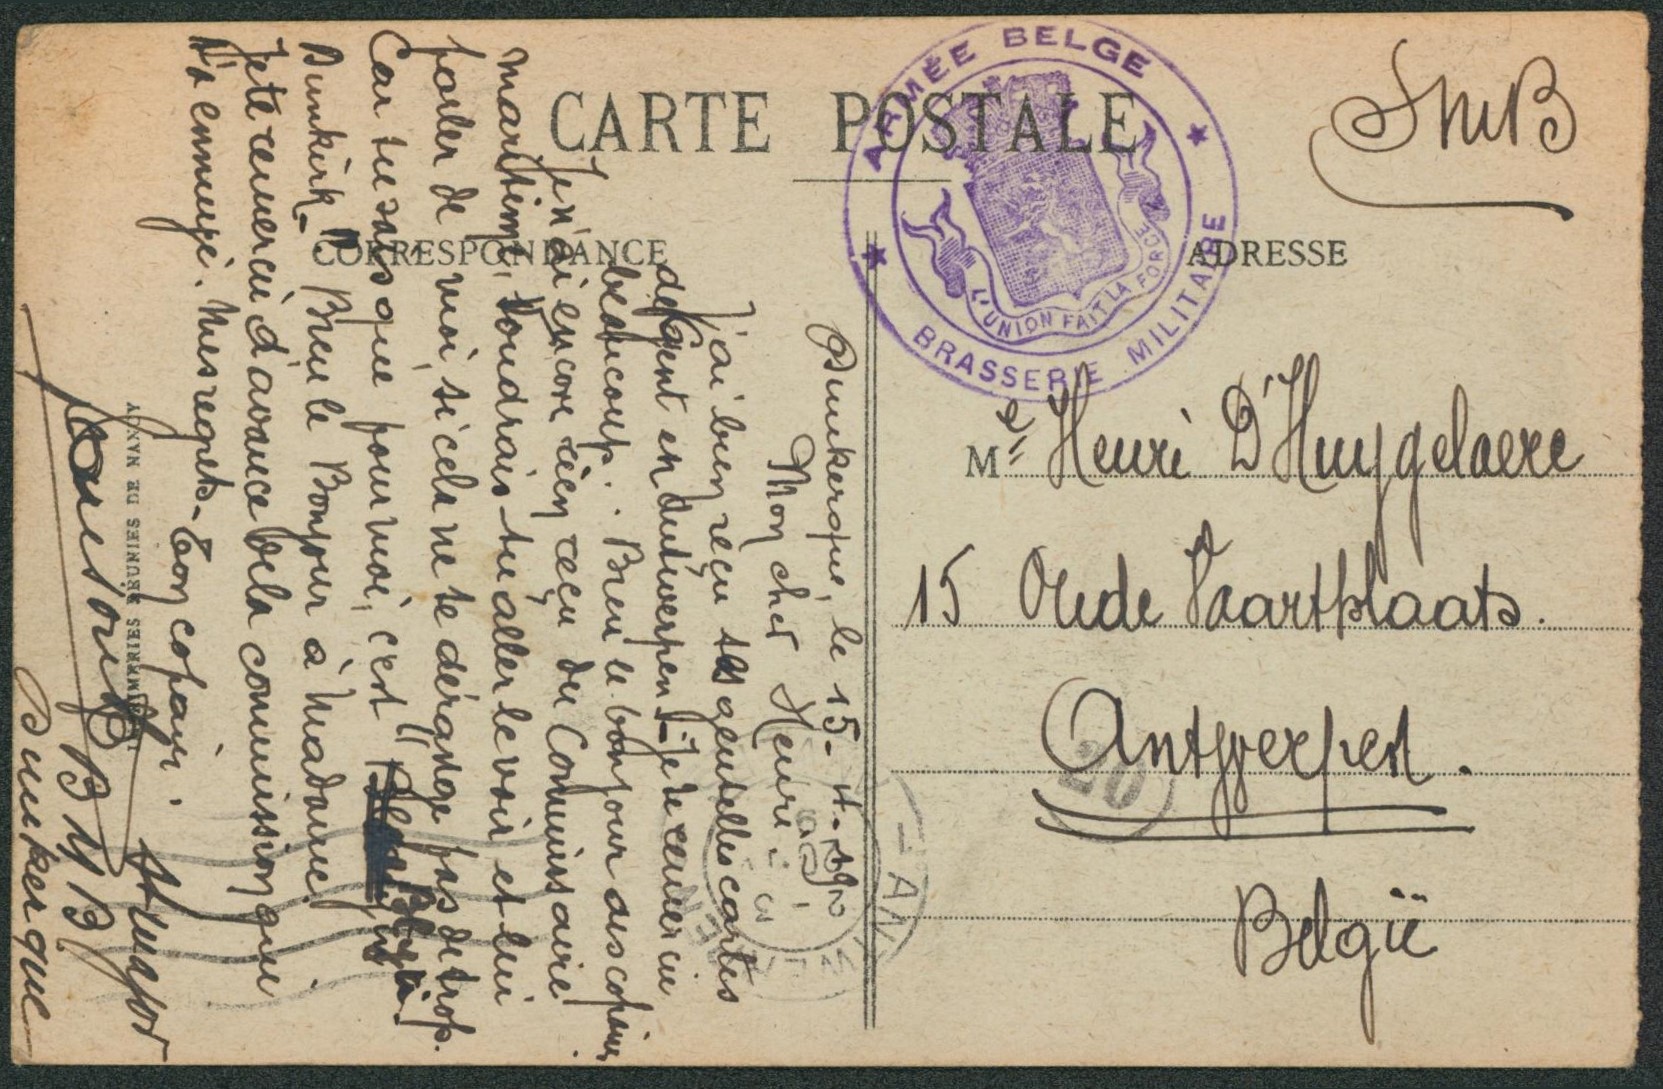 CARTE POSTALE
CORRESPONDANCE
ADRESSE
ARMÉE BELGE
BRASSERIE MILITAIRE
L'UNION FAIT LA FORCE
SMB
Dunkerque, le 15-4-
Mon cher Henri
J'ai bien reçu tes gentilles cartes
d'Anvers
beaucoup. Bren le bonjour aux copains
Je n'ai encore rien reçu du Commissaire
maritime, voudrais-tu aller le voir et lui
parler de moi si cela ne te dérange pas de trop.
Car tu sais que pour moi, c'est
Dunkirk - Bien le Bonjour à Madame.
Je te remercie d'avance de la commission qui
t'a ennuyé. Mes regrets - Ton copain.
B M B
Dunkerque
IMPRIMERIES RÉUNIES DE NANCY
Mr Henri D'Huygelaere
15 Oude Vaartplaats.
Antwerpen.
België
20
ANTWERPEN